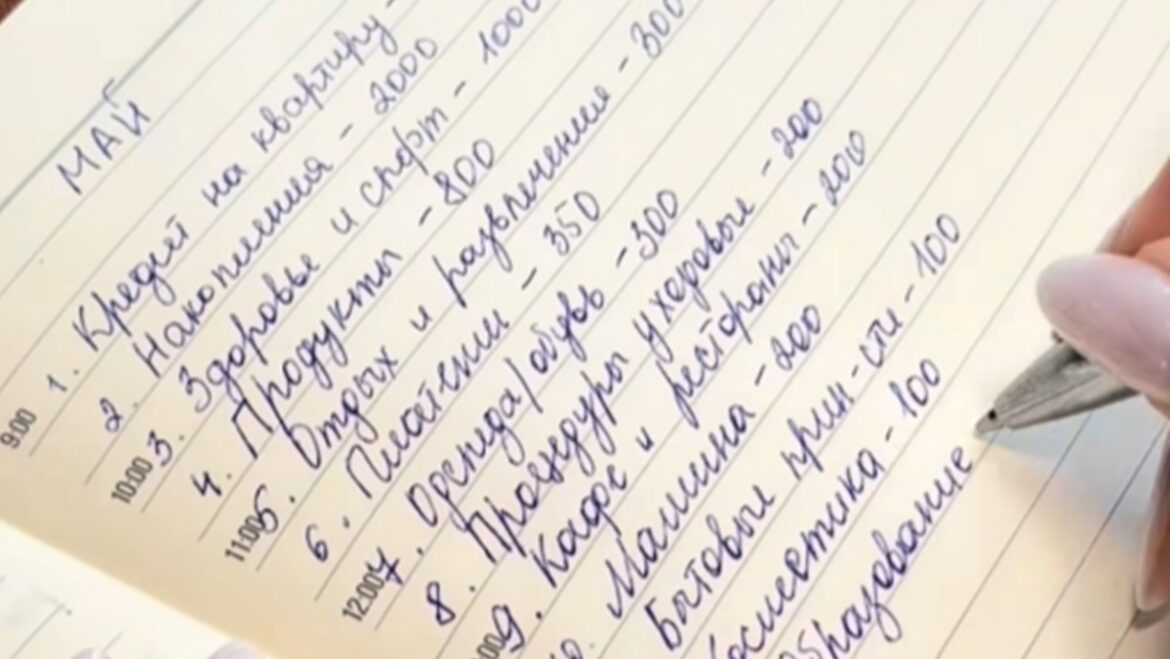 МАЙ
1. Кредит на квартиру -
9:00
2. Накопления - 2000
3. Здоровье и спорт - 1000
10:00
4. Продукты - 800
5. Отдых и развлечения - 300
11:00
6. Платежи - 350
7. Одежда/обувь - 300
12:00
8. Процедуры уходовые - 200
9. Кафе и рестораны - 200
Машина - 200
Бытовые прин-сти - 100
Косметика - 100
Образование